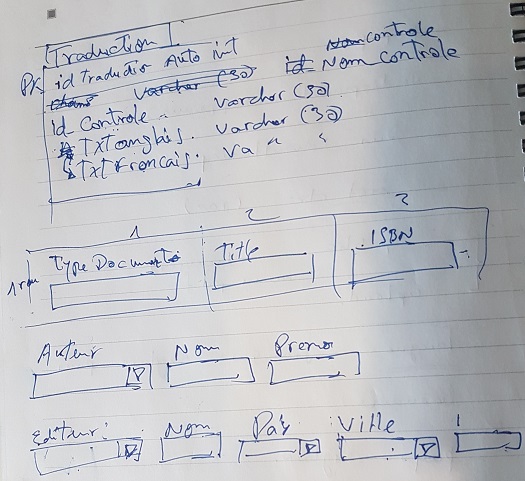 Traduction
PK id Traductio Auto int Nom controle
champs varchar (30) id Nom controle
id_Controle - varchar (30)
TxTanglais. varchar (30)
TxtFrancais. va " "
1 2 3
1row Type Document Title ISBN
Auteur Nom Prenom
Editeur: Nom Pays Ville